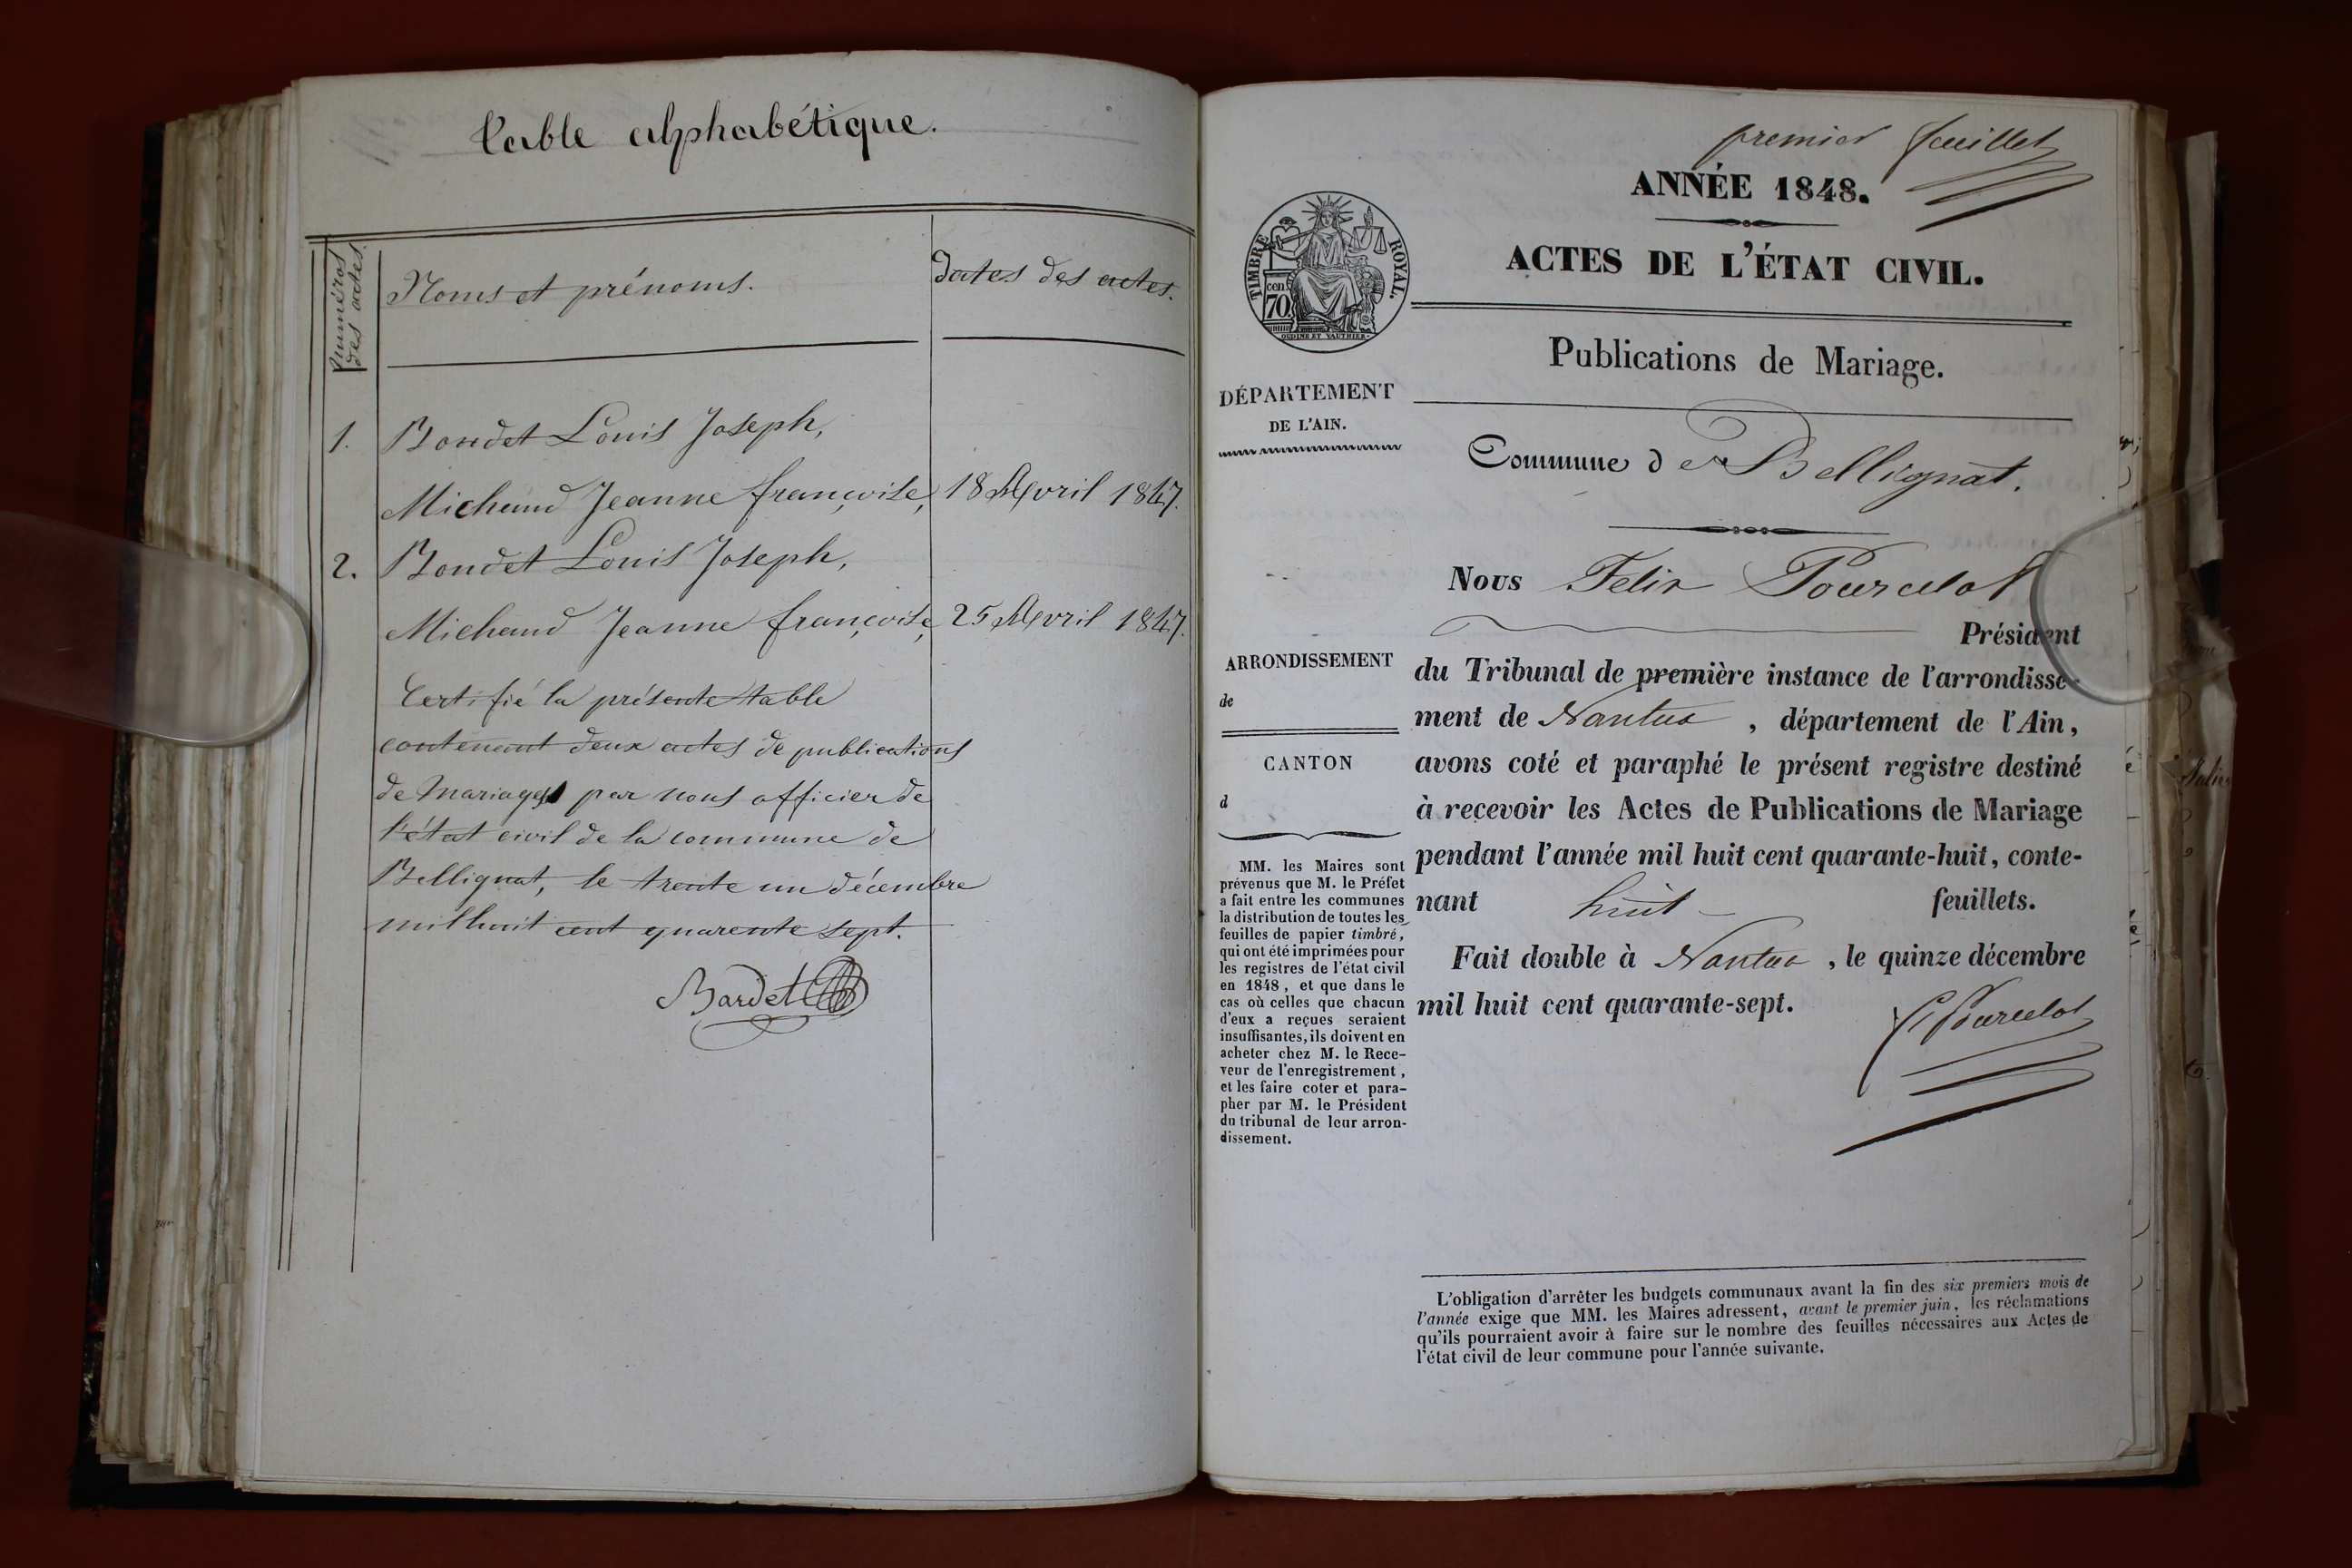 Table alphabétique.
Numéros
des actes.
Noms et prénoms.
dates des actes.
1. Bondet Louis Joseph,
Michaud Jeanne françoise, 18 Avril 1847.
2. Bondet Louis Joseph,
Michaud Jeanne françoise, 25 Avril 1847.
Certifié la présente table
contenant deux actes de publications
de mariages par nous officier de
l'état civil de la commune de
Bellignat, le trente un décembre
mil huit cent quarente sept.
Bardet
premier feuillet
ANNÉE 1848.
ACTES DE L'ÉTAT CIVIL.
TIMBRE ROYAL.
cen.
70
Publications de Mariage.
DÉPARTEMENT
DE L'AIN.
Commune de Bellignat.
Nous Felix Pourcelot
Président
du Tribunal de première instance de l'arrondisse-
ment de Nantua, département de l'Ain,
avons coté et paraphé le présent registre destiné
à recevoir les Actes de Publications de Mariage
pendant l'année mil huit cent quarante-huit, conte-
nant huit feuillets.
Fait double à Nantua, le quinze décembre
mil huit cent quarante-sept.
Pourcelot
ARRONDISSEMENT
de
CANTON
d
MM. les Maires sont
prévenus que M. le Préfet
a fait entre les communes
la distribution de toutes les
feuilles de papier timbré,
qui ont été imprimées pour
les registres de l'état civil
en 1848, et que dans le
cas où celles que chacun
d'eux a reçues seraient
insuffisantes, ils doivent en
acheter chez M. le Rece-
veur de l'enregistrement,
et les faire coter et para-
pher par M. le Président
du tribunal de leur arron-
dissement.
L'obligation d'arrêter les budgets communaux avant la fin des six premiers mois de
l'année exige que MM. les Maires adressent, avant le premier juin, les réclamations
qu'ils pourraient avoir à faire sur le nombre des feuilles nécessaires aux Actes de
l'état civil de leur commune pour l'année suivante.